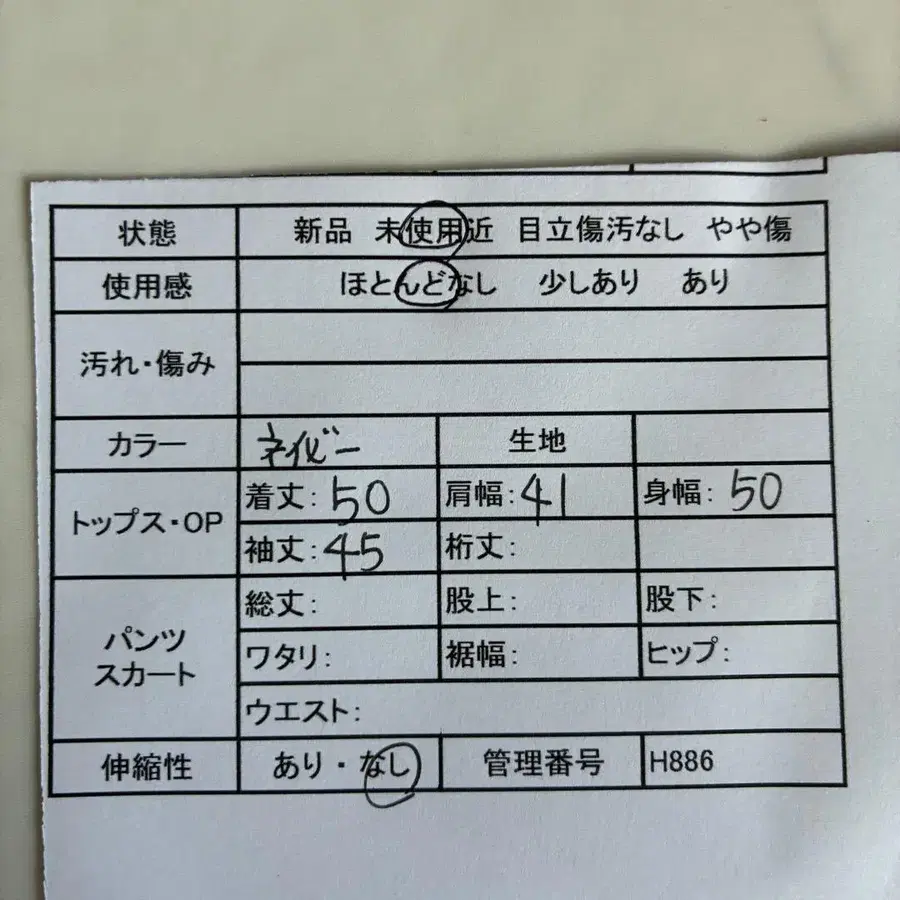 状態 新品 未使用近 目立傷汚なし やや傷
使用感 ほとんどなし 少しあり あり
汚れ・傷み
カラー ネイビー 生地
トップス・OP
着丈: 50 肩幅: 41 身幅: 50
袖丈: 45 裄丈:
パンツ
スカート
総丈: 股上: 股下:
ワタリ: 裾幅: ヒップ:
ウエスト:
伸縮性 あり・なし 管理番号 H886